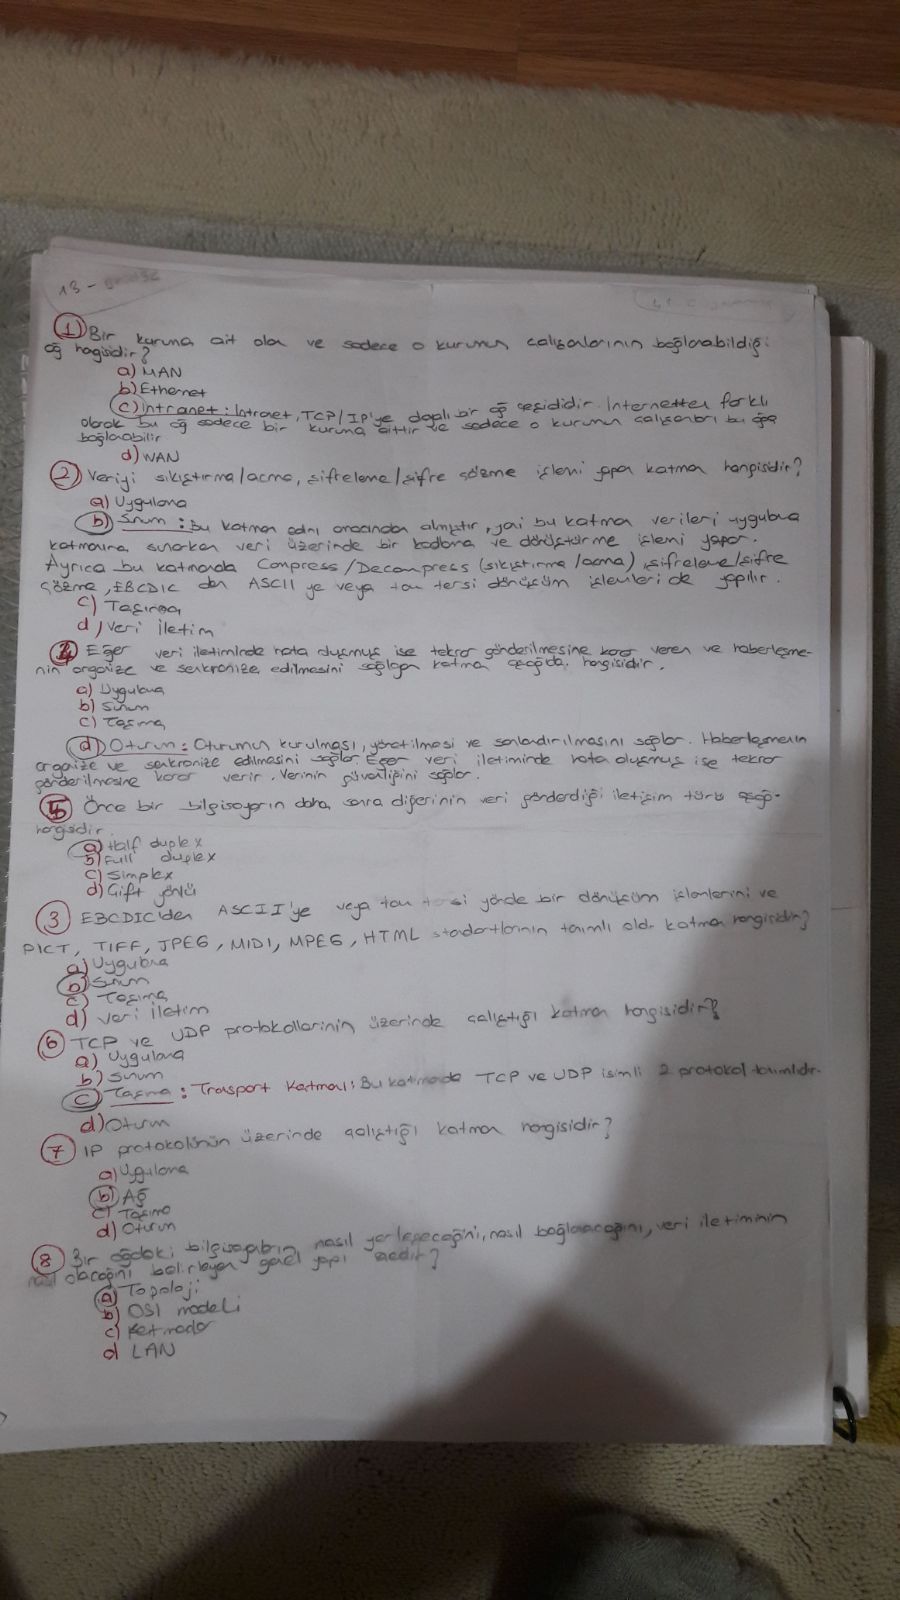 13 -
① Bir kuruma ait olan ve sadece o kurumun çalışanlarının bağlanabildiği
ağ hangisidir?
a) MAN
b) Ethernet
c) intranet: Intranet, TCP/IP'ye dayalı bir ağ çeşididir. Internetten farklı
olarak bu ağ sadece bir kuruma aittir ve sadece o kurumun çalışanları bu ağa
bağlanabilir
d) WAN
② Veriyi sıkıştırma/açma, şifreleme/şifre çözme işlemi yapan katman hangisidir?
a) Uygulama
b) Sunum: Bu katman adını amacından almıştır, yani bu katman verileri uygulama
katmanına sunarken veri üzerinde bir kodlama ve dönüştürme işlemi yapar.
Ayrıca bu katmanda Compress/Decompress (sıkıştırma/açma), şifreleme/şifre
çözme, EBCDIC den ASCII ye veya tam tersi dönüşüm işlemleri de yapılır.
c) Taşıma
d) Veri İletim
4 Eğer veri iletiminde hata oluşmuş ise tekrar gönderilmesine karar veren ve haberleşme-
nin organize ve senkronize edilmesini sağlayan katman aşağıda. hangisidir.
a) Uygulama
b) Sunum
c) Taşıma
d) Oturum: Oturumun kurulması, yönetilmesi ve sonlandırılmasını sağlar. Haberleşmenin
organize ve senkronize edilmesini sağlar. Eğer veri iletiminde hata oluşmuş ise tekrar
gönderilmesine karar verir. Verinin güvenliğini sağlar.
5 Önce bir bilgisayarın daha sonra diğerinin veri gönderdiği iletişim türü aşağı-
hangisidir.
a) Half duplex
b) Full duplex
c) Simplex
d) Çift yönlü
③ EBCDIC'den ASCII'ye veya tam tersi yönde bir dönüşüm işlemlerini ve
PICT, TIFF, JPEG, MIDI, MPEG, HTML standartlarının tanımlı oldr. katman hangisidir?
a) Uygulama
b) Sunum
c) Taşıma
d) Veri İletim
⑥ TCP ve UDP protokollerinin üzerinde çalıştığı katman hangisidir?
a) Uygulama
b) Sunum
c) Taşıma: Transport Katmanı: Bu katmanda TCP ve UDP isimli 2 protokol tanımlıdır.
d) Oturum
⑦ IP protokolünün üzerinde çalıştığı katman hangisidir?
a) Uygulama
b) Ağ
c) Taşıma
d) Oturum
⑧ Bir ağdaki bilgisayarların nasıl yerleşeceğini, nasıl bağlanacağını, veri iletiminin
nasıl olacağını belirleyen genel yapı nedir?
a) Topoloji
b) OSI modeli
c) Katmanlar
d LAN